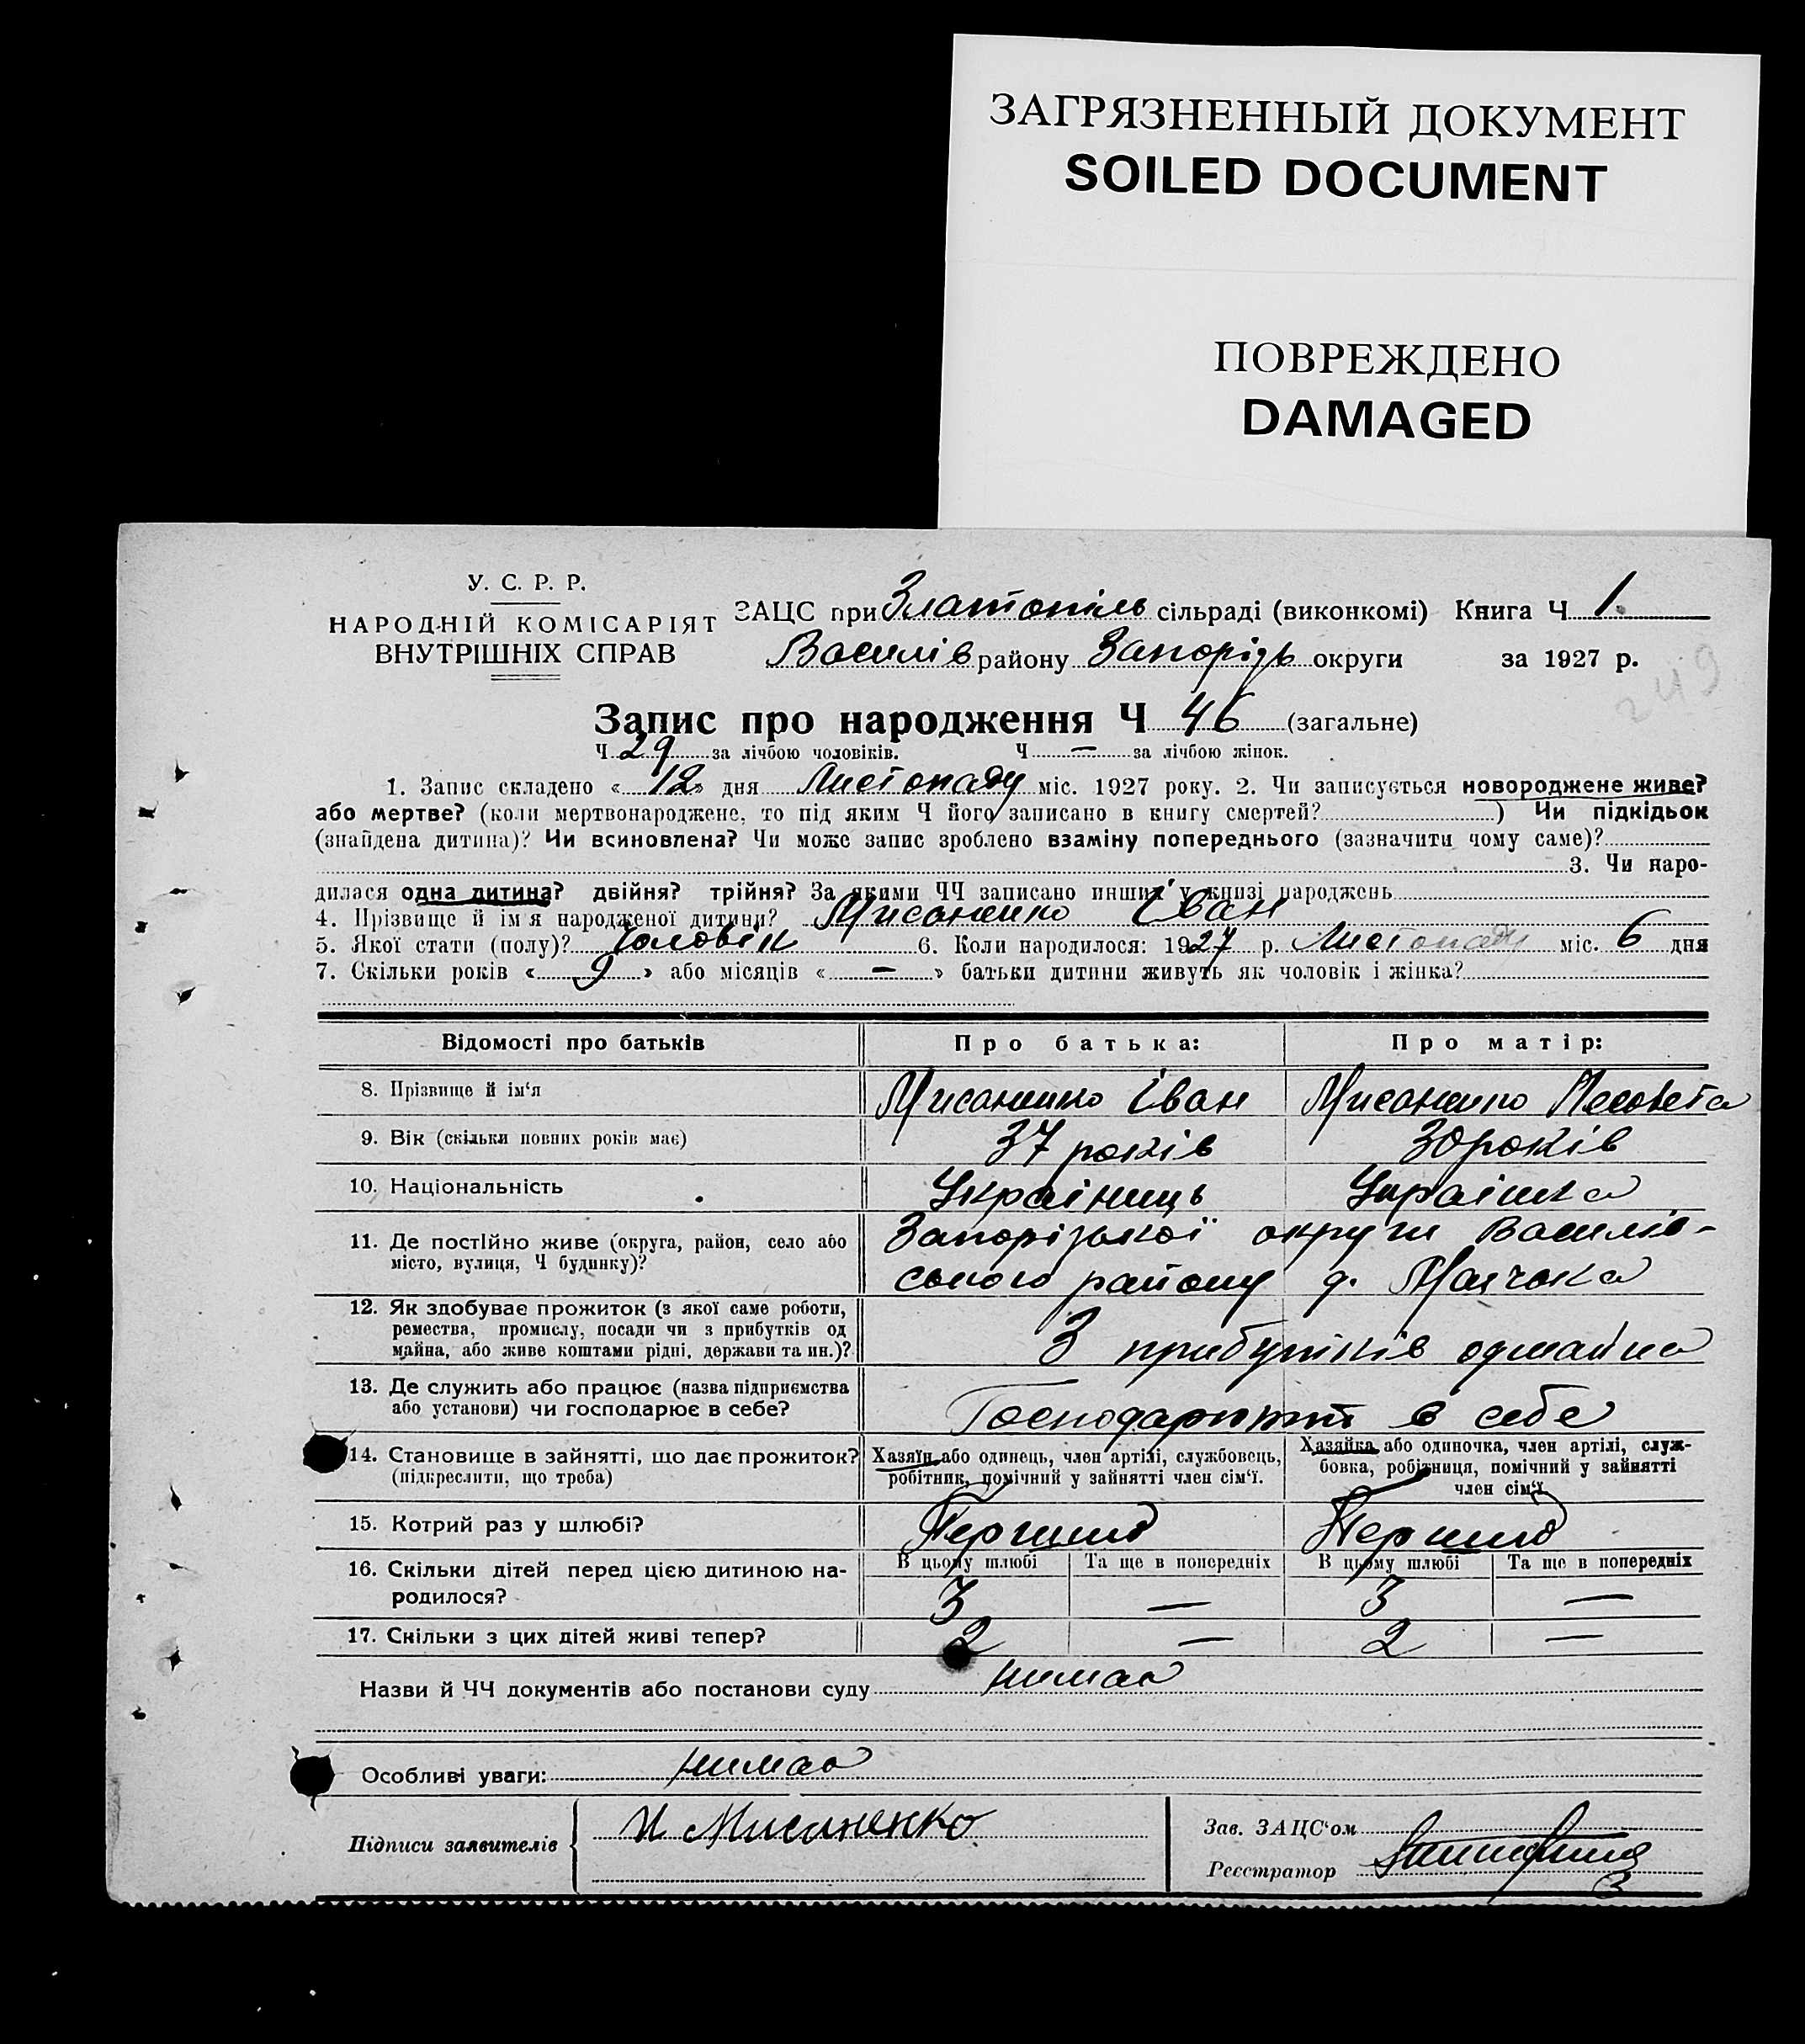 ЗАГРЯЗНЕННЫЙ ДОКУМЕНТ
SOILED DOCUMENT
ПОВРЕЖДЕНО
DAMAGED
У. С. Р. Р.
НАРОДНІЙ КОМІСАРІЯТ
ВНУТРІШНІХ СПРАВ
ЗАЦС при Златопіль сільраді (виконкомі) Книга Ч 1.
Василів району Запорізь округи за 1927 р.
249
Запис про народження Ч 46 (загальне)
Ч 29 за лічбою чоловіків. Ч — за лічбою жінок.
1. Запис складено «12» дня Листопаду міс. 1927 року. 2. Чи записується новороджене живе?
або мертве? (коли мертвонароджене, то під яким Ч його записано в книгу смертей? ) Чи підкідьок
(знайдена дитина)? Чи всиновлена? Чи може запис зроблено взаміну попереднього (зазначити чому саме)?
3. Чи наро-
дилася одна дитина? двійня? трійня? За якими ЧЧ записано инших у книзі народжень
4. Прізвище й ім'я народженої дитини? Мисоненко Іван
5. Якої стати (полу)? Чоловік 6. Коли народилося: 1927 р. Листопаду міс. 6 дня
7. Скільки років «9» або місяців «—» батьки дитини живуть як чоловік і жінка?
Відомості про батьків Про батька: Про матір:
8. Прізвище й ім'я Мисоненко Іван Мисоненко
9. Вік (скільки повних років має) 37 років 30 років
10. Національність Украінець Украінка
11. Де постійно живе (округа, район, село або Запорізької округи Василів-
місто, вулиця, Ч будинку)? ського району д.
12. Як здобуває прожиток (з якої саме роботи,
ремества, промислу, посади чи з прибутків од
майна, або живе коштами рідні, держави та ин.)? З прибутків одмайна
13. Де служить або працює (назва підприємства
або установи) чи господарює в себе? Господарюють в себе
14. Становище в зайнятті, що дає прожиток? Хазяїн або одинець, член артілі, службовець, Хазяйка або одиночка, член артілі, служ-
(підкреслити, що треба) робітник, помічний у зайнятті член сім'ї. бовка, робітниця, помічний у зайнятті
член сім'ї.
15. Котрий раз у шлюбі? Перший Перший
16. Скільки дітей перед цією дитиною на- В цьому шлюбі Та ще в попередніх В цьому шлюбі Та ще в попередніх
родилося? 3 — 3 —
17. Скільки з цих дітей живі тепер? 2 — 2 —
Назви й ЧЧ документів або постанови суду нимао
Особливі уваги: нимао
Підписи заявителів И Мисоненко
Зав. ЗАЦС'ом
Реєстратор